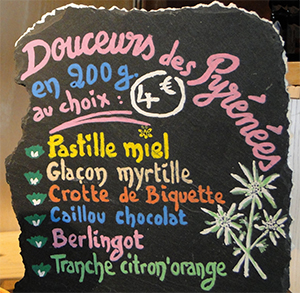 Douceurs des Pyrénées
en 200g.
au choix : 4 €
Pastille miel
Glaçon myrtille
Crotte de Biquette
Caillou chocolat
Berlingot
Tranche citron'orange